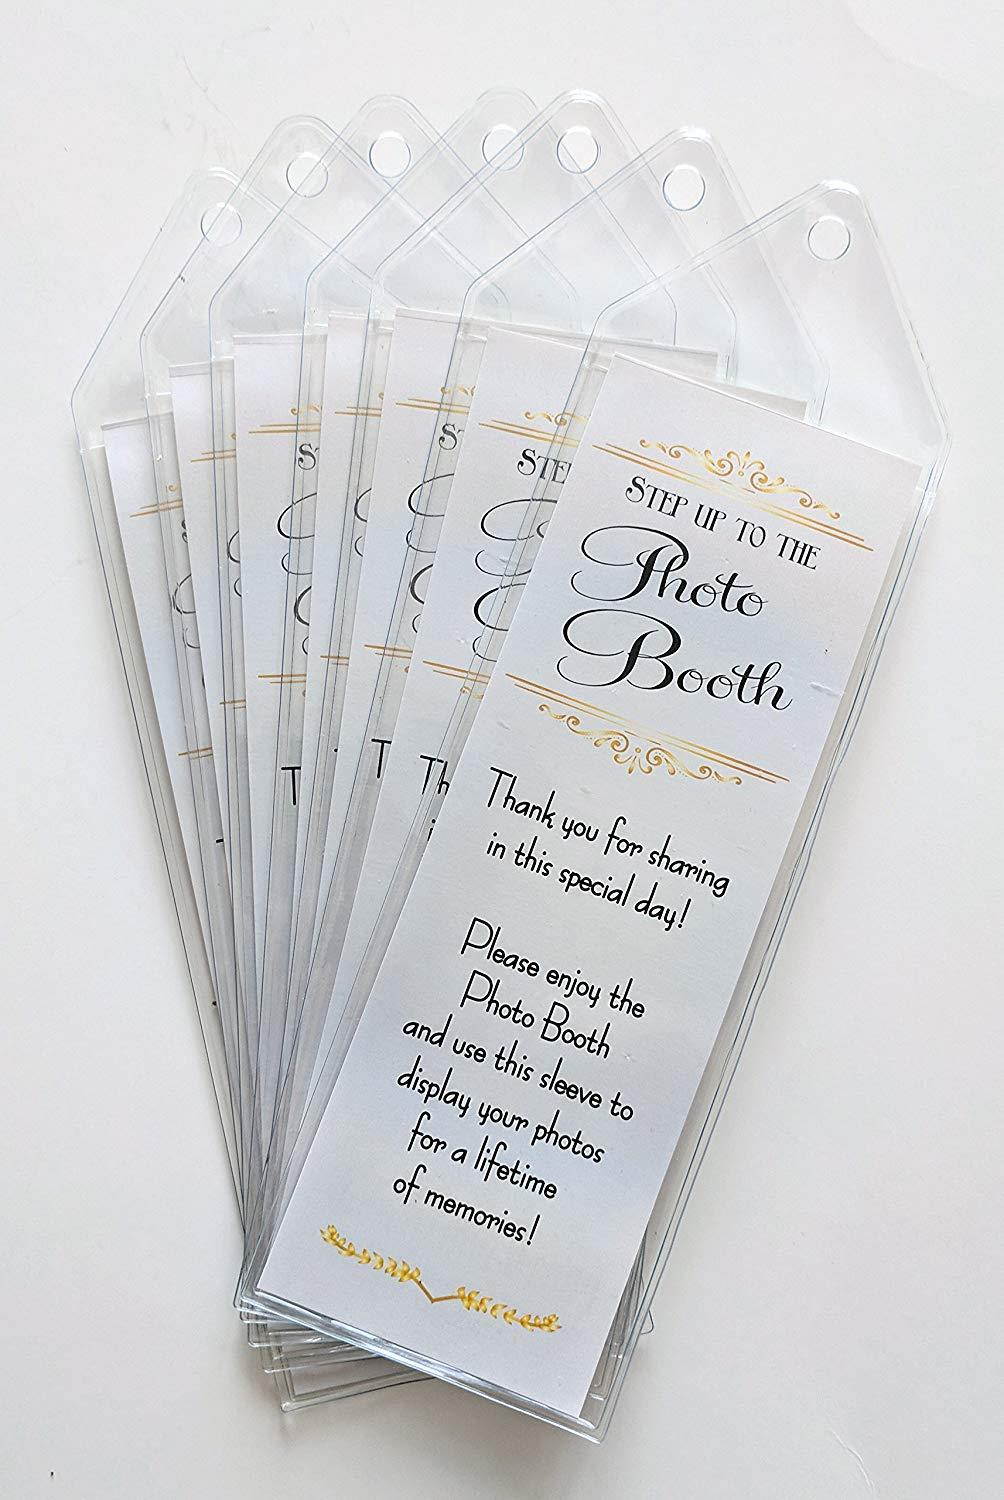 STEP UP TO THE
Photo
Booth
Thank you for sharing
in this special day!
Please enjoy the
Photo Booth
and use this sleeve to
display your photos
for a lifetime
of memories!
STE
S
S
Th
i
T
T